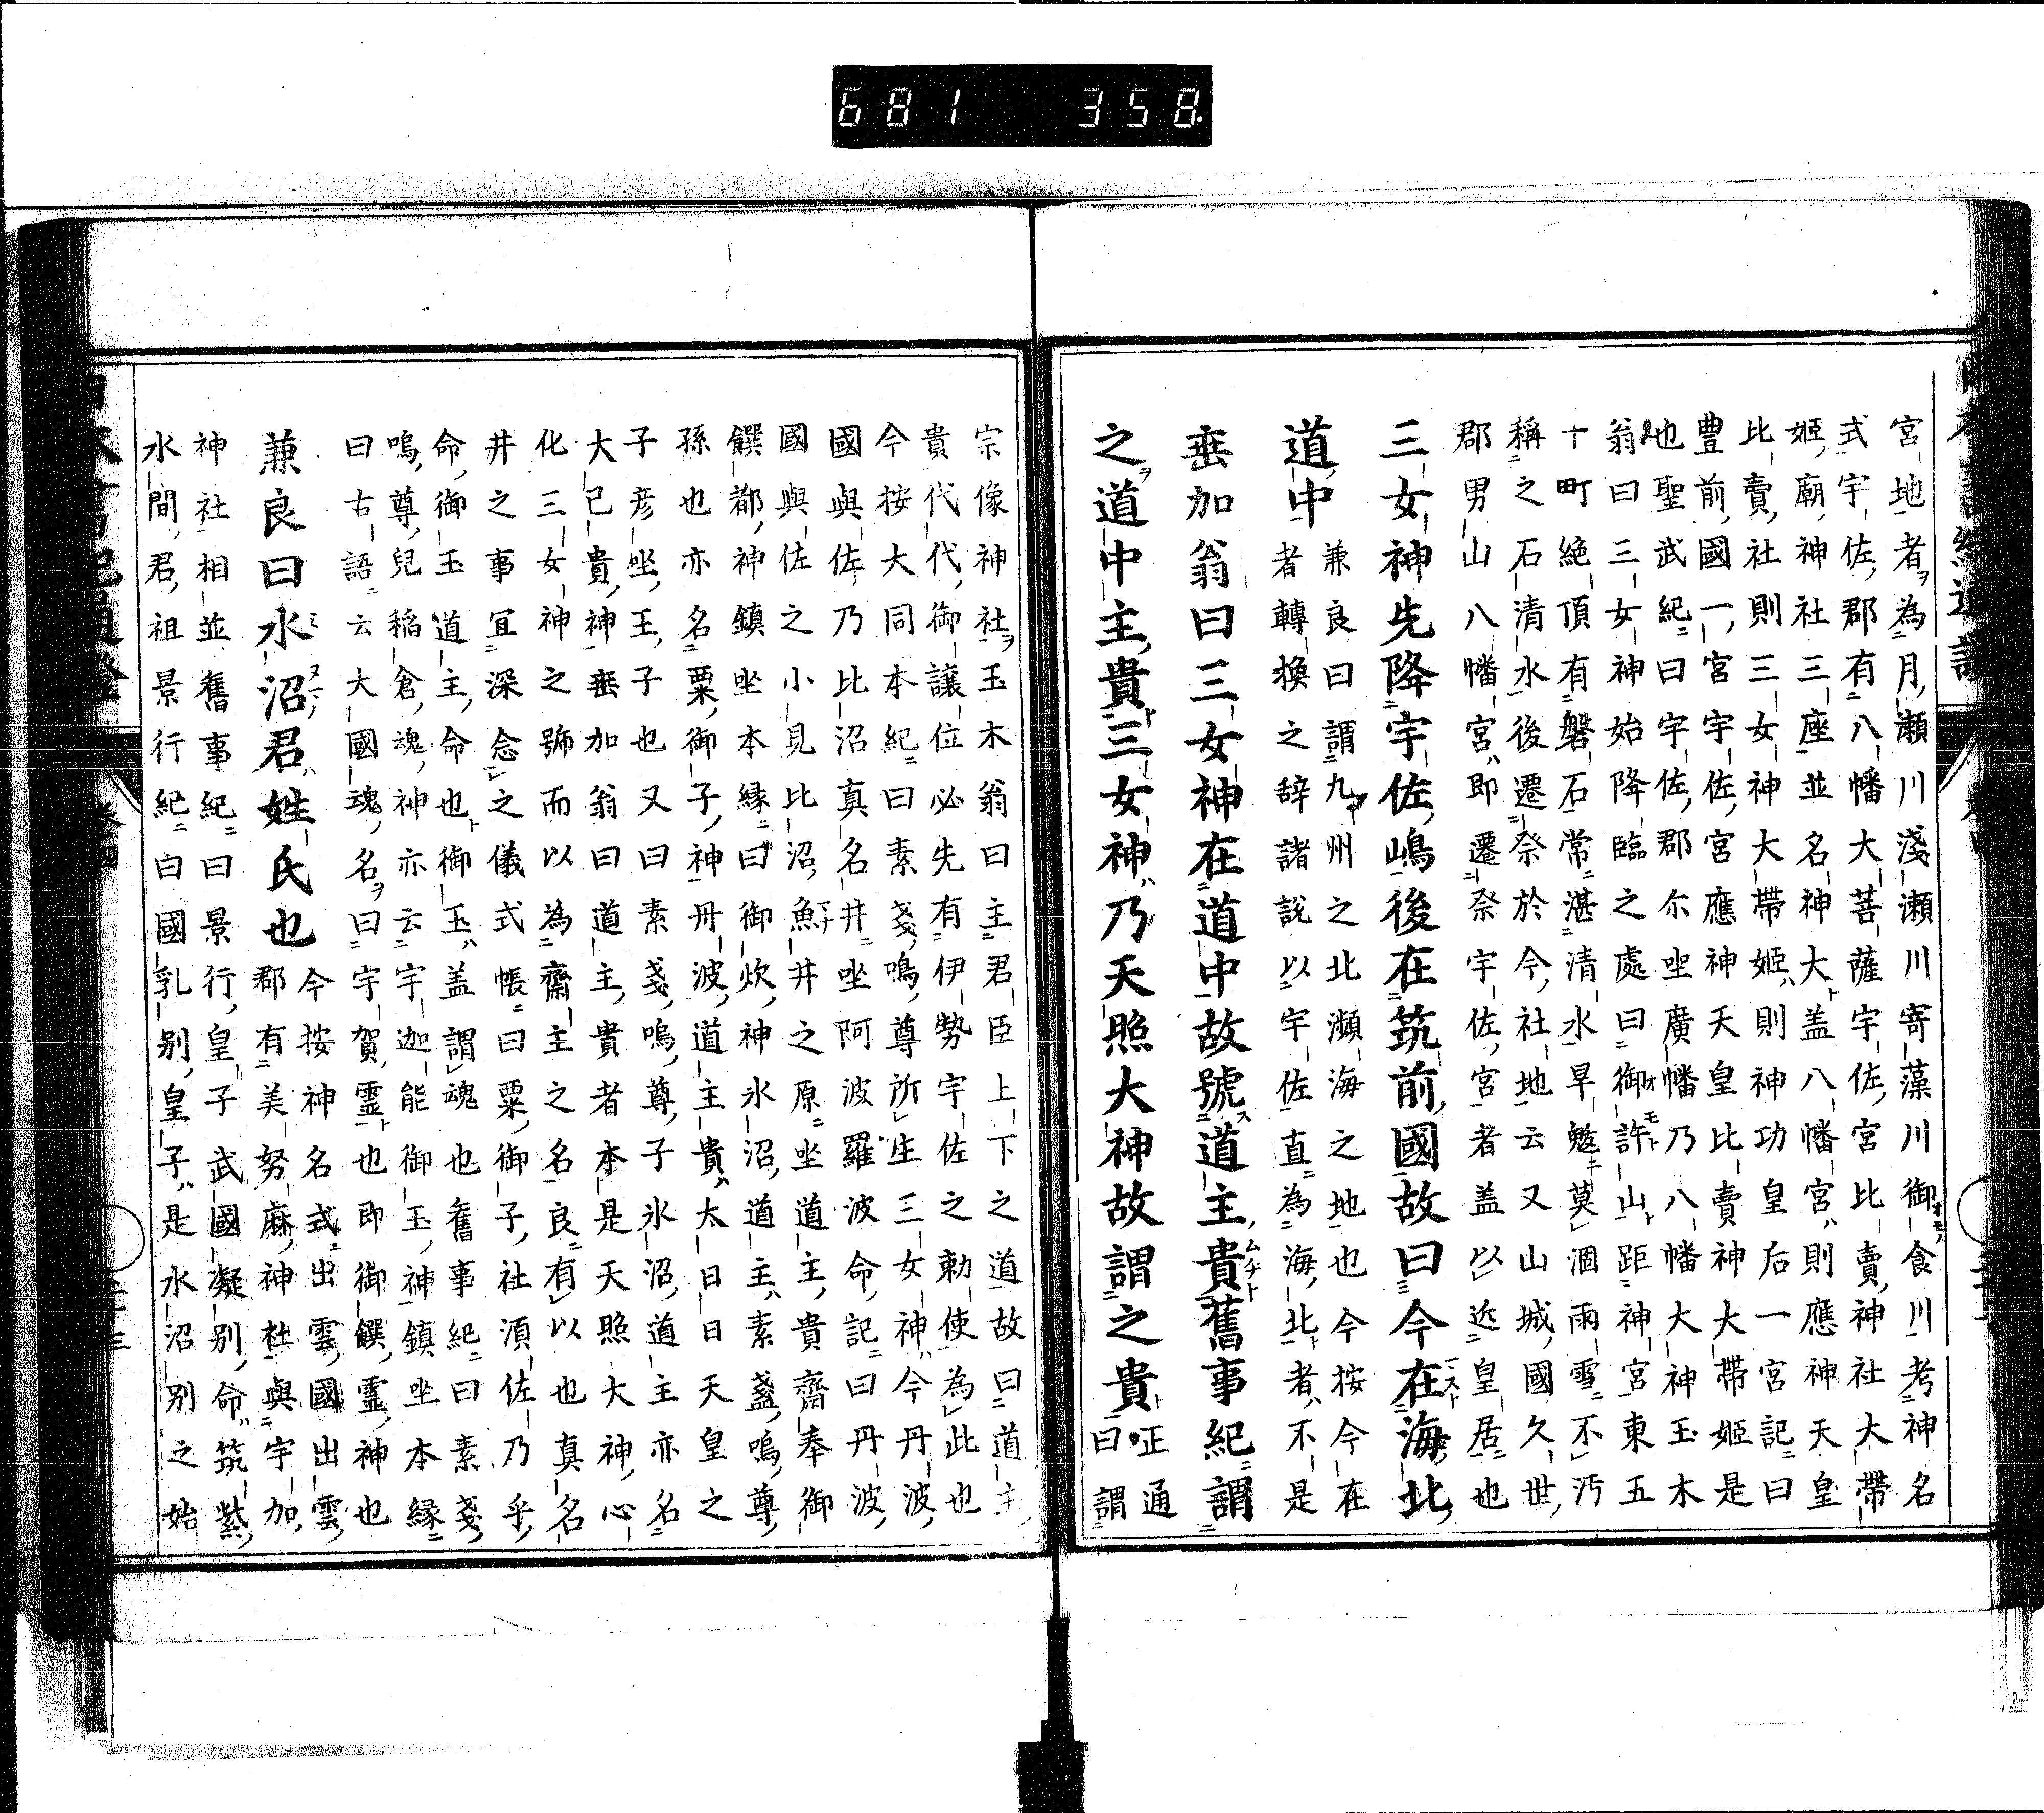 681 358
宮地者為月瀬川淺瀬川寄藻川御食川考神名
式宇佐郡有八幡大菩薩宇佐宮比賣神社大帶
姬廟神社三座並名神大盖八幡宮則應神天皇
比賣社則三女神大帶姬則神功皇后一宮記曰
豐前國一宮宇佐宮應神天皇比賣神大帶姬是
也聖武紀曰宇佐郡尓坐廣幡乃八幡大神玉木
翁曰三女神始降臨之處曰御許山距神宮東五
十町絶頂有磐石常湛清水旱魃莫涸雨雪不汚
稱之石清水後遷祭於今社地云又山城國久世
郡男山八幡宮即遷祭宇佐宮者盖以近皇居也
三女神先降宇佐嶋後在筑前國故曰今在海北
道中
兼良曰謂九州之北瀕海之地也今按今在
者轉換之辞諸說以宇佐直為海北者不是
垂加翁曰三女神在道中故號道主貴舊事紀謂
之道中主貴三女神乃天照大神故謂之貴
正通
曰謂
宗像神社玉木翁曰主君臣上下之道故曰道主
貴代代御讓位必先有伊勢宇佐之勅使為此也
今按大同本紀曰素戔嗚尊所生三女神今丹波
國與佐乃比沼真名井坐阿波羅波命記曰丹波
國與佐之小見比沼魚井之原坐道主貴齋奉御
饌都神鎮坐本縁曰御炊神氷沼道主素盞嗚尊
孫也亦名粟御子神丹波道主貴太日日天皇之
子彦坐王子也又曰素戔嗚尊子氷沼道主亦名
大已貴神垂加翁曰道主貴者本是天照大神心
化三女神之號而以為齋主之名良有以也真名
井之事宜深念之儀式帳曰粟御子社湏佐乃乎
命御玉道主命也御玉盖謂魂也舊事紀曰素戔
嗚尊兒稲倉魂神亦云宇迦能御玉神鎮坐本縁
曰古語云大國魂名曰宇賀霊也即御饌霊神也
兼良曰水沼君姓氏也
今按神名式出雲國出雲
郡有美努麻神社與宇加
神社相並舊事紀曰景行皇子武國凝别命筑紫
水間君祖景行紀曰國乳别皇子是水沼别之始